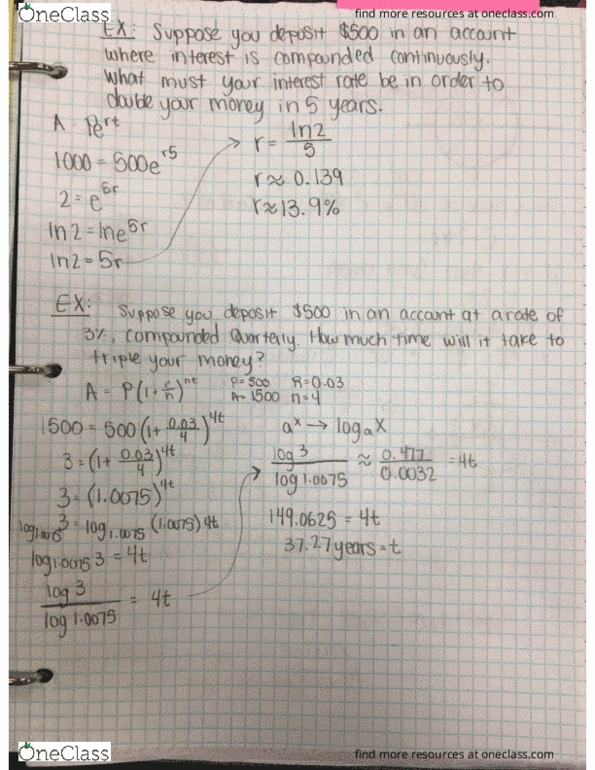 OneClass
find more resources at oneclass.com
EX: Suppose you deposit $500 in an account
where interest is compounded continuously.
What must your interest rate be in order to
double your money in 5 years.
A = Pe^rt
1000 = 500e^r5
2 = e^5r
ln2 = lne^5r
ln2 = 5r
r = ln2/5
r ≈ 0.139
r ≈ 13.9%
EX: Suppose you deposit $500 in an account at a rate of
3%, compounded Quarterly. How much time will it take to
triple your money?
A = P(1+r/n)^nt
P=500 R=0.03
A=1500 n=4
1500 = 500(1+0.03/4)^4t
3 = (1+0.03/4)^4t
3 = (1.0075)^4t
log1.0075 3 = log1.0075 (1.0075)4t
log1.0075 3 = 4t
log 3/log 1.0075 = 4t
a^x → logaX
log 3/log 1.0075 ≈ 0.477/0.0032 = 4t
149.0625 = 4t
37.27 years = t
OneClass
find more resources at oneclass.com